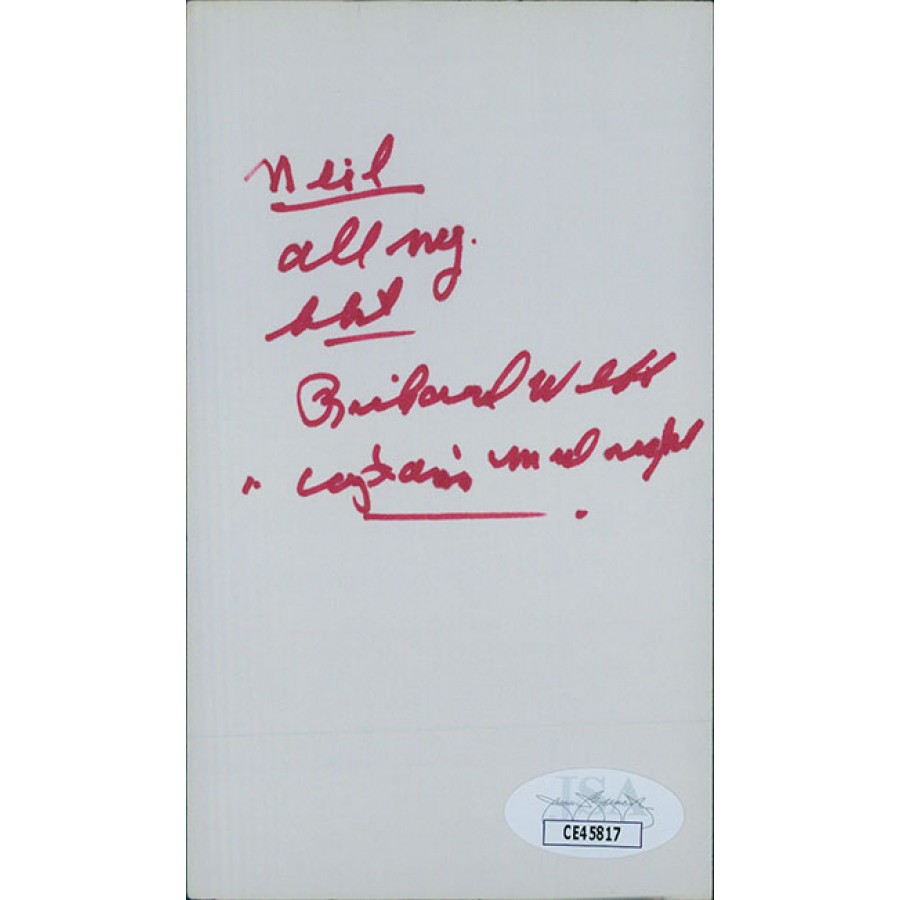 Neil
all my
best
Richard Webb
"Captain Midnight
.
JSA
CE45817